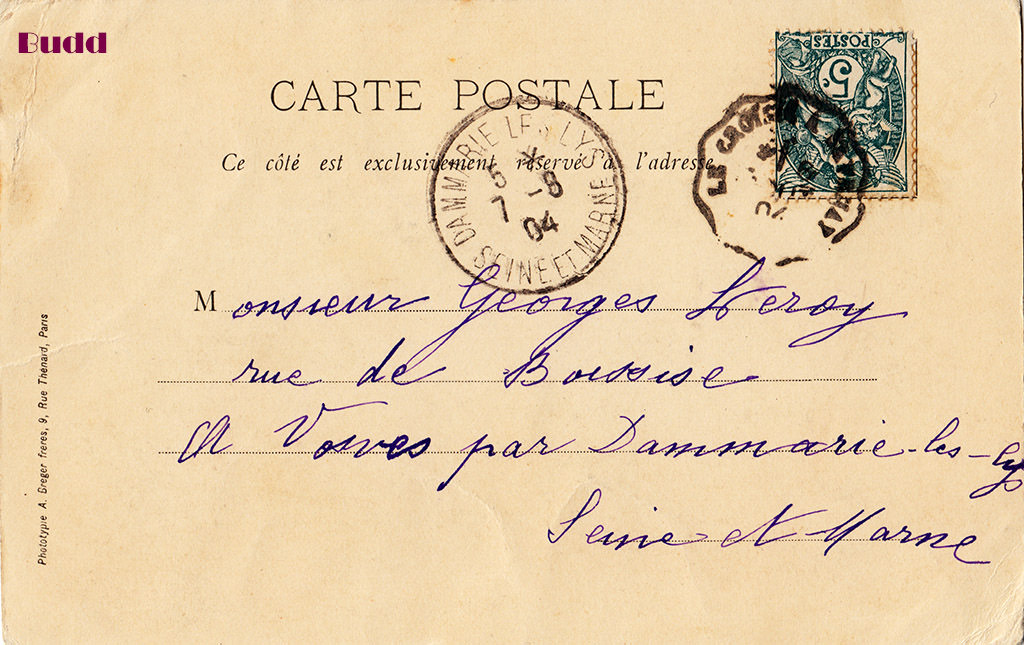 Budd
CARTE POSTALE
Ce côté est exclusivement réservé à l'adresse
POSTES
5c
DAMMARIE LES LYS
5 -8
7
04
SEINE ET MARNE
LE CROIS
04
Monsieur Georges Leroy
rue de Boissise
A Vosves par Dammarie-les-lys
Seine-et-Marne
Phototypie A. Breger frères, 9, Rue Thénard, Paris